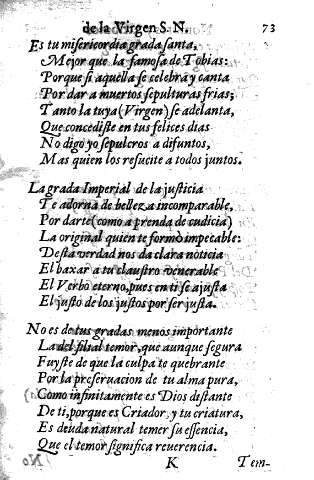 de la Virgen S. N. 73
Es tu misericordia grada santa,
Mejor que la famosa de Tobias:
Porque si aquella se celebra y canta
Por dar a muertos sepulturas frias;
Tanto la tuya (Virgen) se adelanta,
Que concediste en tus felices dias
No digo yo sepulcros a difuntos,
Mas quien los resucite a todos juntos.
La grada Imperial de la justicia
Te adorna de belleza incomparable,
Por darte (como a prenda de cudicia)
La original quien te formò impecable:
Desta verdad nos da clara noticia
El baxar a tu claustro venerable
El Verbo eterno, pues en ti se ajusta
El justo de los justos por ser justa.
No es de tus gradas menos importante
La del filial temor, que aunque segura
Fuyste de que la culpa te quebrante
Por la preseruacion de tu alma pura,
Como infinitamente es Dios distante
De ti, porque es Criador, y tu criatura,
Es deuda natural temer su essencia,
Que el temor significa reuerencia.
K Tem-